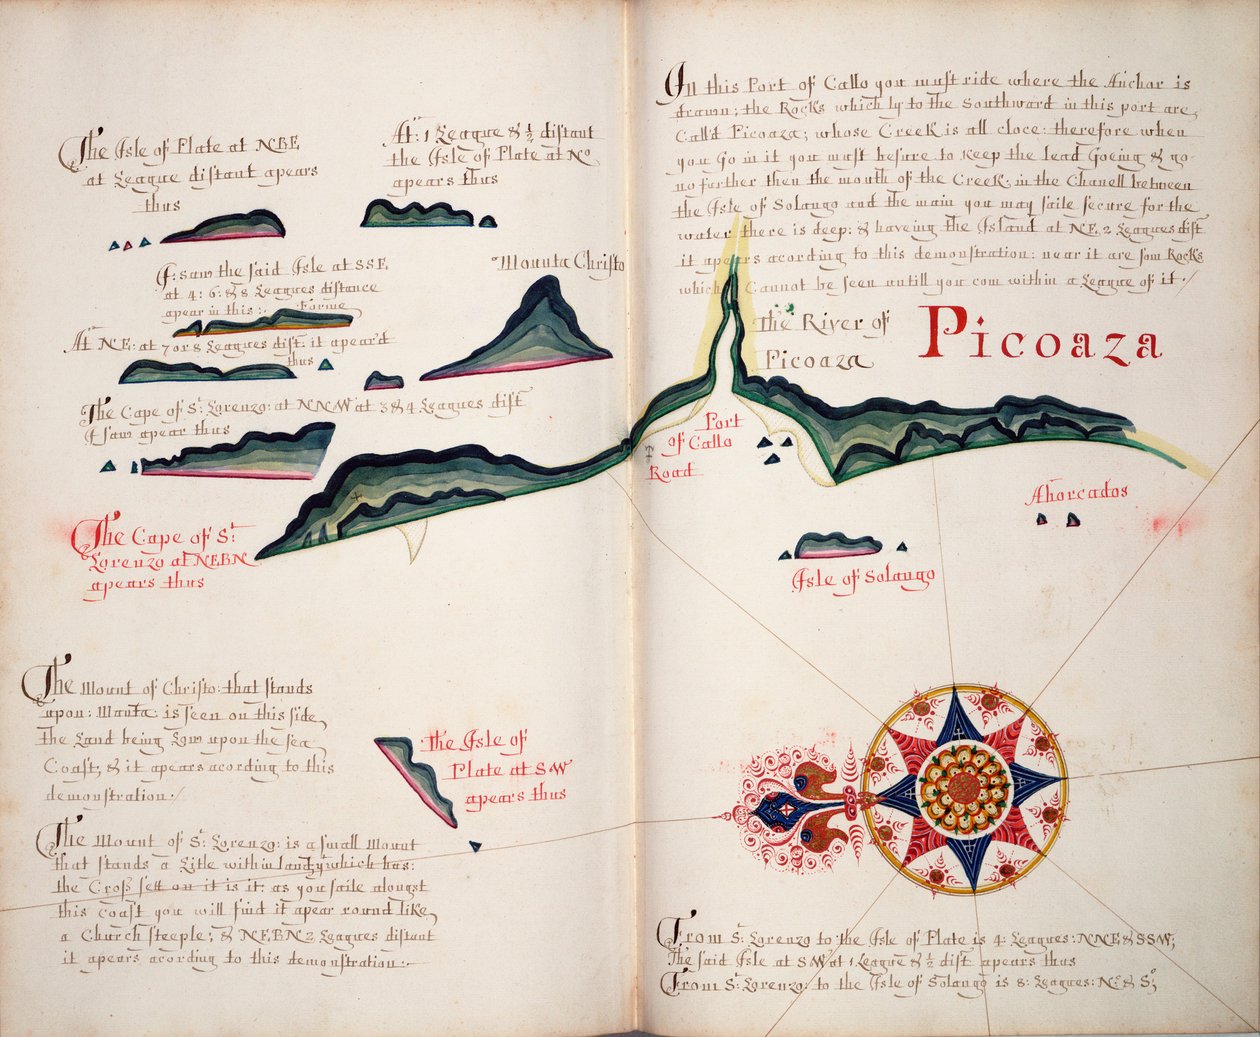 The Isle of Plate at NBE
at League distant apears
thus
At: 1 League & ½ distant
the Isle of Plate at No
apears thus
I: saw the said Isle at SSE
at 4: 6: & 8 Leagues distance
apear in this: Forme
Mounta Christo
At NE: at 7 or 8 Leagues dist: it apear'd
thus
The Cape of St: Lorenzo: at NNW at 3 & 4 Leagues dist
I saw apear thus
The Cape of St:
Lorenzo at NEBN
apears thus
The Mount of Christo: that stands
upon: Manta: is seen on this side,
the Land being Low upon the sea
Coast, & it apears acording to this
demonstration:/
the Isle of
Plate at SW
apears thus
The Mount of St: Lorenzo: is a small Mount
that stands a Litle within land; which has:
the Cross sett on it is it: as you saile alongst
this coast you will find it apear round like
a Church steeple; & NEBN 2 Leagues distant
it apears acording to this demonstration:-
In this Port of Callo you must ride where the Anchar is
drawn; the Rocks which ly to the Southward in this port are
Call'd Picoaza; whose Creek is all cloce: therefore when
you Go in it you must besure to keep the lead Goeing & go-
no further then the mouth of the Creek, in the Chanell between
the Isle of Solango and the main you may saile secure for the
water there is deep: & haveing the Island at NE, 2 Leagues dist
it apears acording to this demonstration: near it are som Rocks
which Cannot be seen untill you com within a League of it:/
The River of
Picoaza
Picoaza
Port
of Callo
Road
Ahorcados
Isle of Solango
From St: Lorenzo to the Isle of Plate is 4: Leagues: NNE & SSW;
The said Isle at SW at 1 League & ½ dist apears thus
From St: Lorenzo: to the Isle of Solango is 8: Leagues: No: & So;